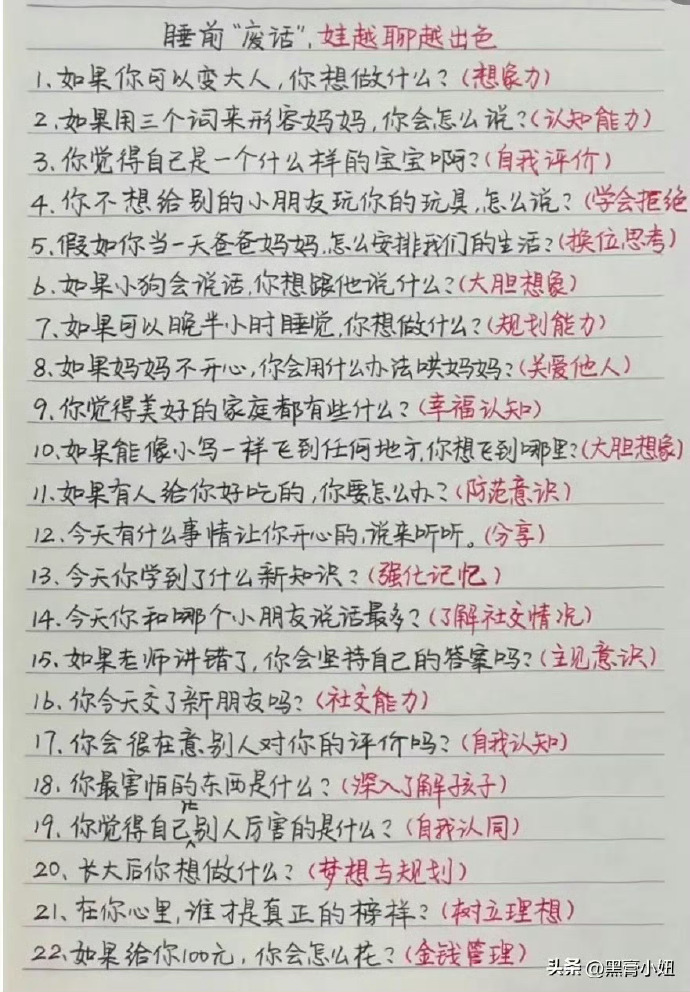 睡前"废话",娃越聊越出色
1.如果你可以变大人,你想做什么?(想象力)
2.如果用三个词来形容妈妈,你会怎么说?(认知能力)
3.你觉得自己是一个什么样的宝宝啊?(自我评价)
4.你不想给别的小朋友玩你的玩具,怎么说?(学会拒绝
5.假如你当一天爸爸妈妈,怎么安排我们的生活?(换位思考)
6.如果小狗会说话,你想跟他说什么?(大胆想象)
7.如果可以晚半小时睡觉,你想做什么?(规划能力)
8.如果妈妈不开心,你会用什么办法哄妈妈?(关爱他人)
9.你觉得美好的家庭都有些什么?(幸福认知)
10.如果能像小鸟一样飞到任何地方,你想飞到哪里?(大胆想象)
11.如果有人给你好吃的,你要怎么办?(防范意识)
12.今天有什么事情让你开心的,说来听听。(分享)
13.今天你学到了什么新知识?(强化记忆)
14.今天你和哪个小朋友说话最多?(了解社交情况)
15.如果老师讲错了,你会坚持自己的答案吗?(主见意识)
16.你今天交了新朋友吗?(社交能力)
17.你会很在意别人对你的评价吗?(自我认知)
18.你最害怕的东西是什么?(深入了解孩子)
19.你觉得自己比别人厉害的是什么?(自我认同)
20、长大后你想做什么?(梦想与规划)
21、在你心里,谁才是真正的榜样?(树立理想)
22.如果给你100元,你会怎么花?(金钱管理)
头条@黑膏小妞